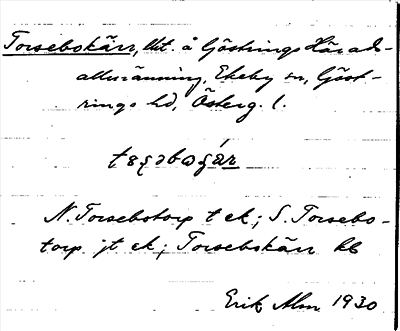 Torsebokärr, litt. å Göstrings Härads-
allmänning, Ekeby sn, Göst-
rings hd, Österg. l.
N. Torsebotorp t ek; S. Torsebo-
torp jt ek; Torsebokärr kb
Erik Alm 1930